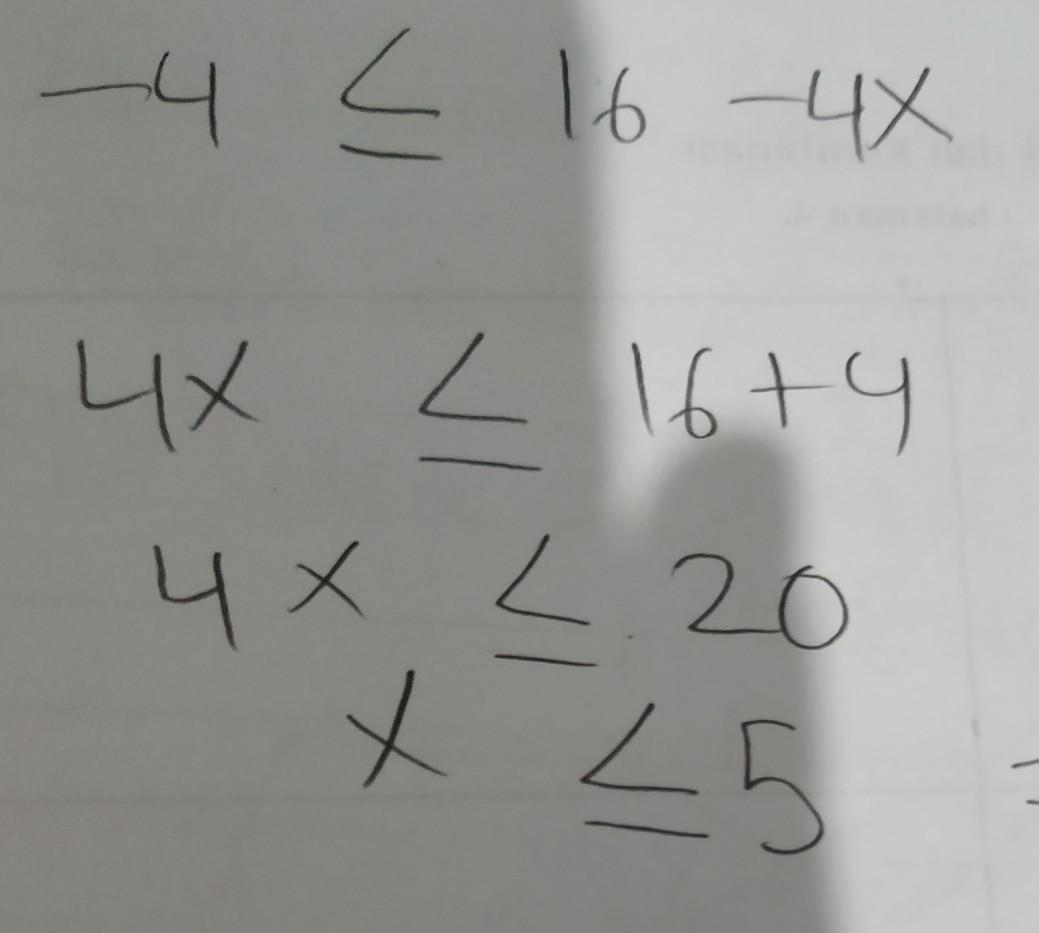 -4 ≤ 16 -4x
4x ≤ 16+4
4x ≤ 20
x ≤ 5